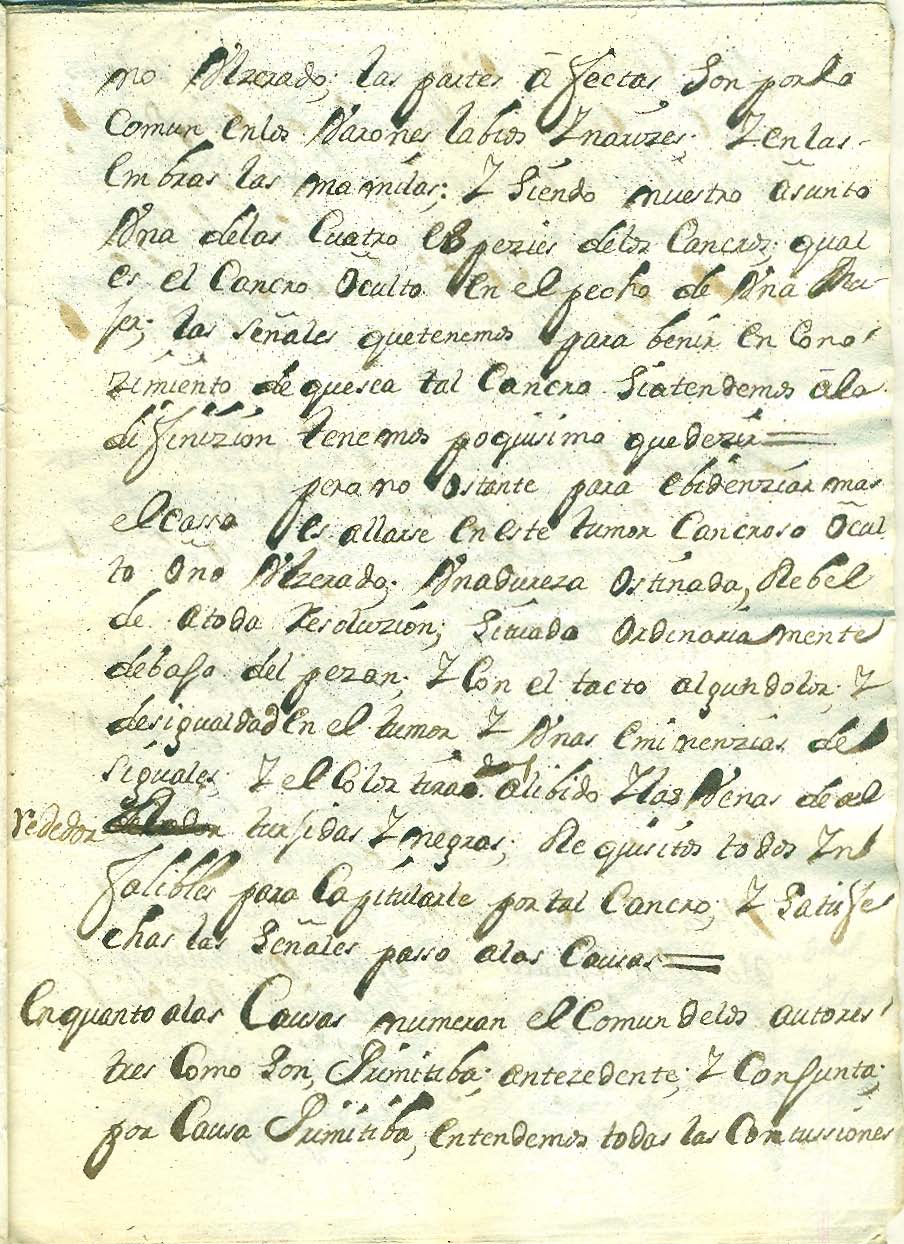 no Vlzerado; las partes áfectas son por lo
Comun en los Varones labios Y narizes; Y en las
Embras las mamilas; Y siendo nuestro asunto
Vna delas Cuatro espezies delos Cancros; qual
es el Cancro Oculto en el pecho de Vna Mu-
ser; las señales quetenemos para benir en Cono
zimiento de quesea tal Cancro siatendemos álo
difinizion tenemos poquisimo quedezir=
pero no ostante para ebidenziar mas
el casso es allarse en este tumor Cancroso Ocul
to Ono Vlzerado; Vnadureza Ostinada, Rebel
de atoda resoluzion; situada Ordinariamente
debaso del pezon; Y Con el tacto algundolor; Y
desigualdad en el tumor Y Vnas eminenzias de
siguales; Y el Color tirado alibido Y las Venas de al
rededor tursidas Y negras; Requisitos todos Yn
falibles para Capitularle por tal Cancro; Y satisfe
chas las señales passo alas Causas=
Enquanto alas Causas numeran el Comun delos autores
tres Como son, Primitiba; antezedente; Y Consunta;
por Causa Primitiba, entendemos todas las Contussiones